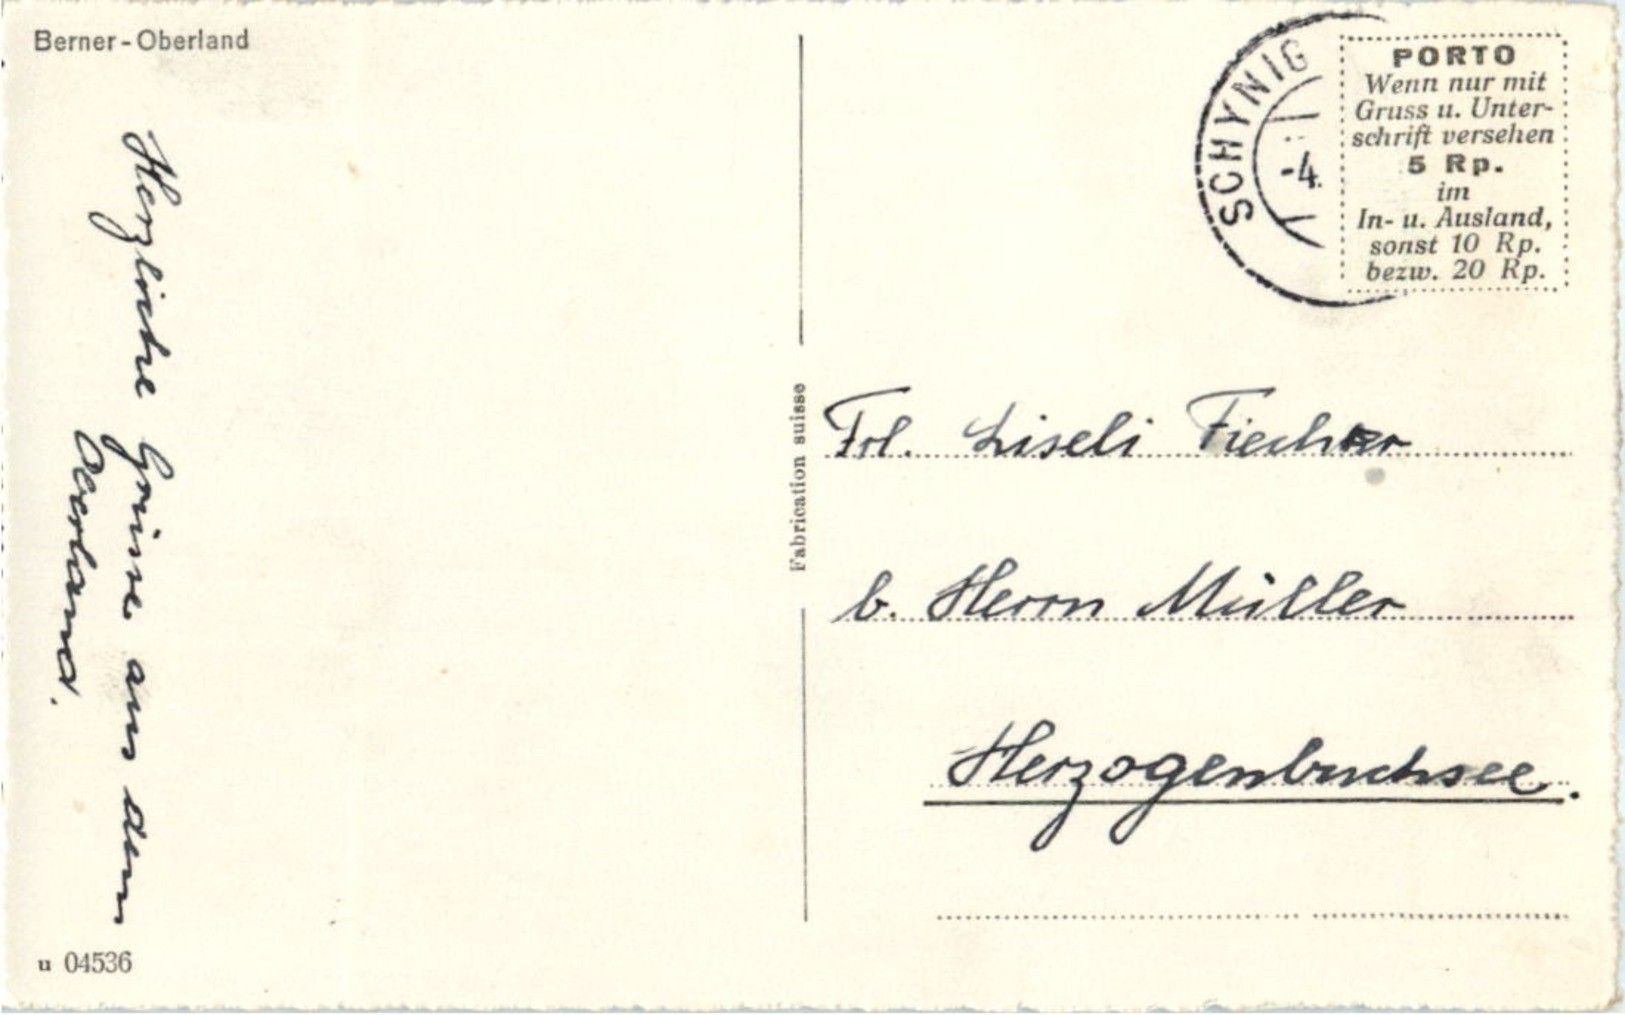 Berner-Oberland
Herzliche Grüsse aus dem
Oberland.
u 04536
Fabrication suisse
SCHYNIG
-4.
PORTO
Wenn nur mit
Gruss u. Unter-
schrift versehen
5 Rp.
im
In- u. Ausland,
sonst 10 Rp.
bezw. 20 Rp.
Frl. Liseli Fiechter
b. Herrn Müller
Herzogenbuchsee.